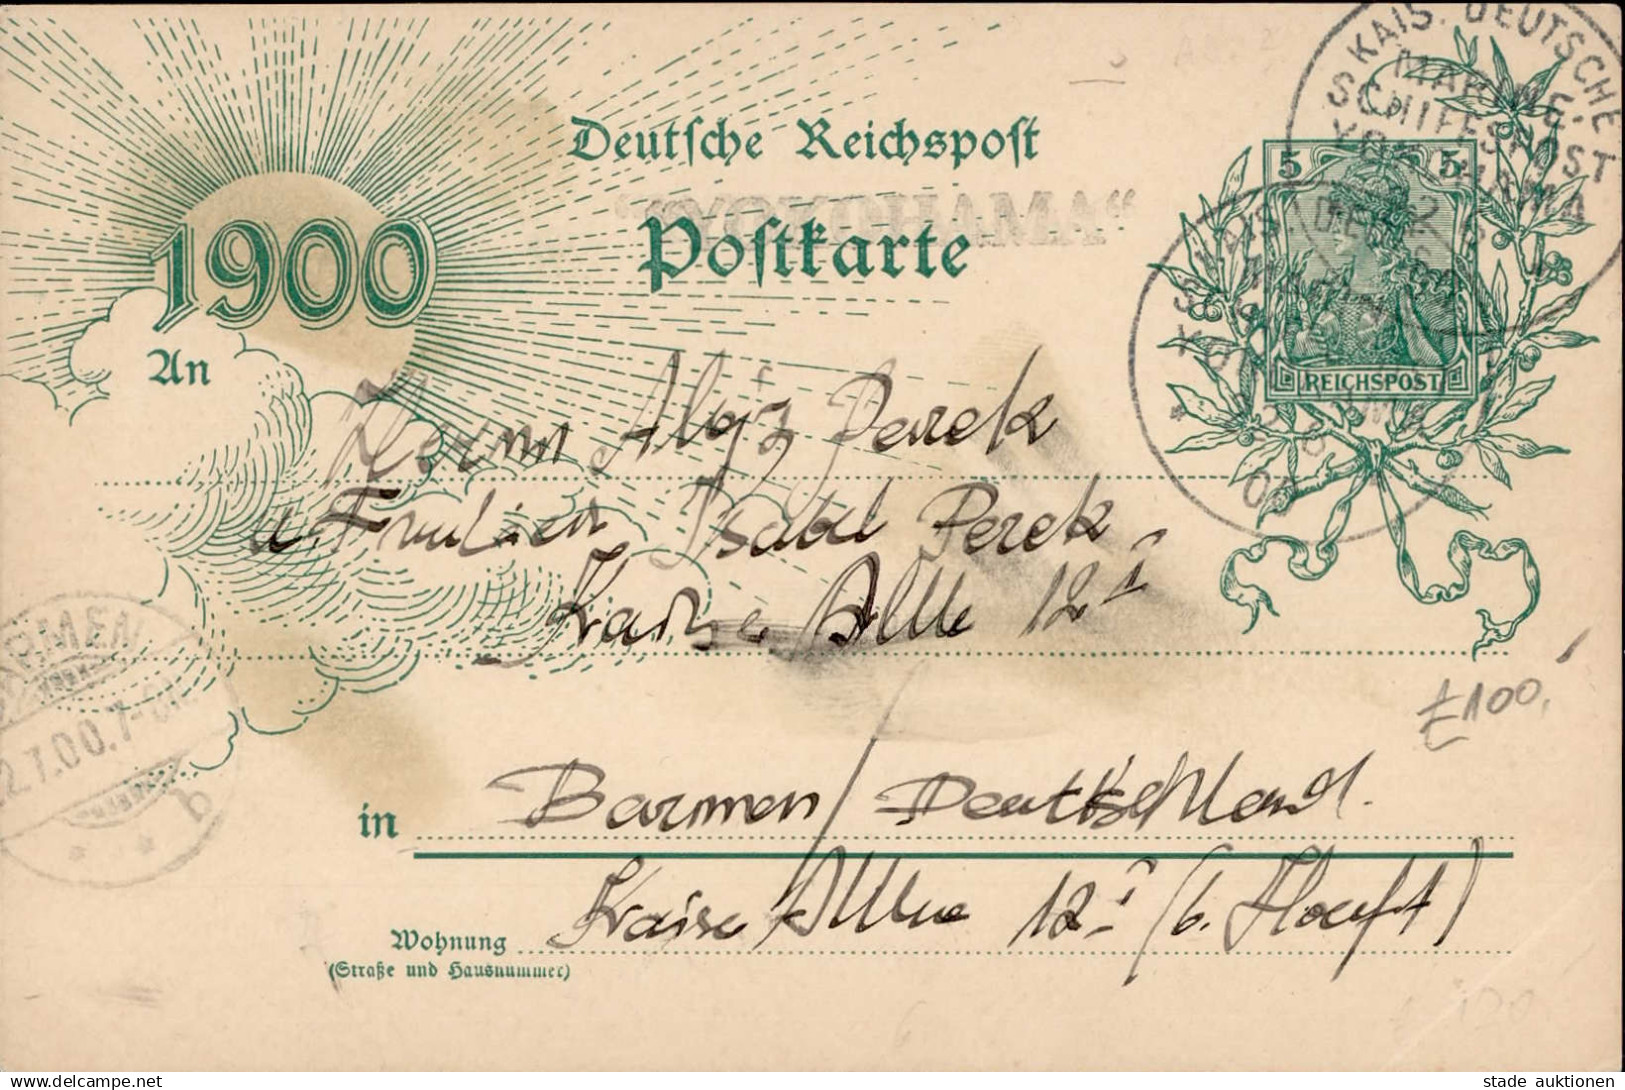 KAIS. DEUTSCHE
MARINE-
SCHIFFSPOST
YOKOHAMA
Deutsche Reichspost
"YOKOHAMA"
Postkarte
1900
5 5
REICHSPOST
KAIS. DEUTSCHE
YOKOHAMA
00
An
Herrn Perek
u. Isabel Perek
Kaiser Allee 12 I
BARMEN
.7.00.7-
b
£100.
in Barmen / Deutschland.
Wohnung Kaiser Allee 12 I (b. Hoeft)
(Straße und Hausnummer)
120
stade auktionen